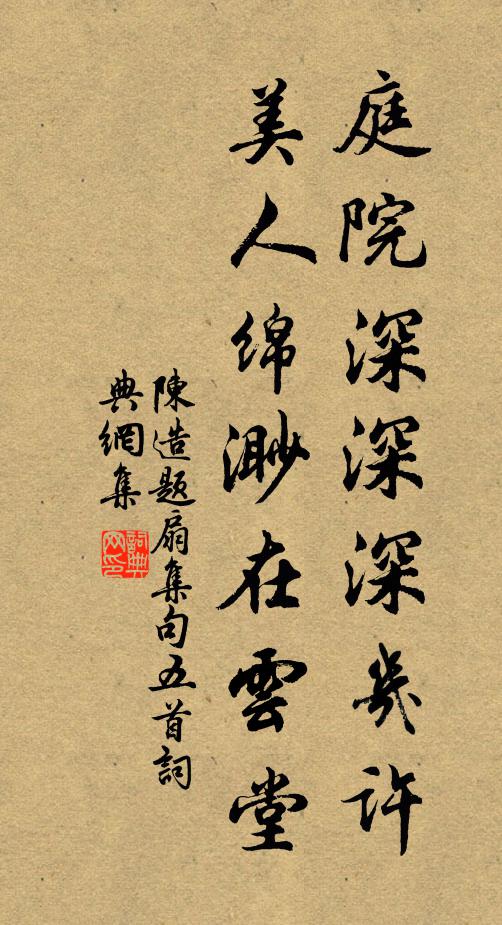 庭院深深深幾許
美人綿渺在雲堂
陳造題扇集句五首詞
典網集
詞典網印